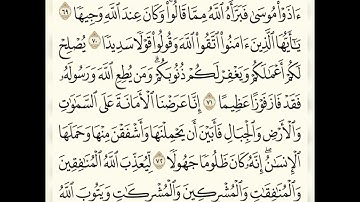 ءَاذَوْا۟ مُوسَىٰ فَبَرَّأَهُ ٱللَّهُ مِمَّا قَالُوا۟ وَكَانَ عِندَ ٱللَّهِ وَجِيهًا ٦٩
يَٰٓأَيُّهَا ٱلَّذِينَ ءَامَنُوا۟ ٱتَّقُوا۟ ٱللَّهَ وَقُولُوا۟ قَوْلًا سَدِيدًا ٧٠ يُصْلِحْ
لَكُمْ أَعْمَٰلَكُمْ وَيَغْفِرْ لَكُمْ ذُنُوبَكُمْ وَمَن يُطِعِ ٱللَّهَ وَرَسُولَهُۥ
فَقَدْ فَازَ فَوْزًا عَظِيمًا ٧١ إِنَّا عَرَضْنَا ٱلْأَمَانَةَ عَلَى ٱلسَّمَٰوَٰتِ
وَٱلْأَرْضِ وَٱلْجِبَالِ فَأَبَيْنَ أَن يَحْمِلْنَهَا وَأَشْفَقْنَ مِنْهَا وَحَمَلَهَا
ٱلْإِنسَٰنُ إِنَّهُۥ كَانَ ظَلُومًا جَهُولًا ٧٢ لِّيُعَذِّبَ ٱللَّهُ ٱلْمُنَٰفِقِينَ
وَٱلْمُنَٰفِقَٰتِ وَٱلْمُشْرِكِينَ وَٱلْمُشْرِكَٰتِ وَيَتُوبَ ٱللَّهُ